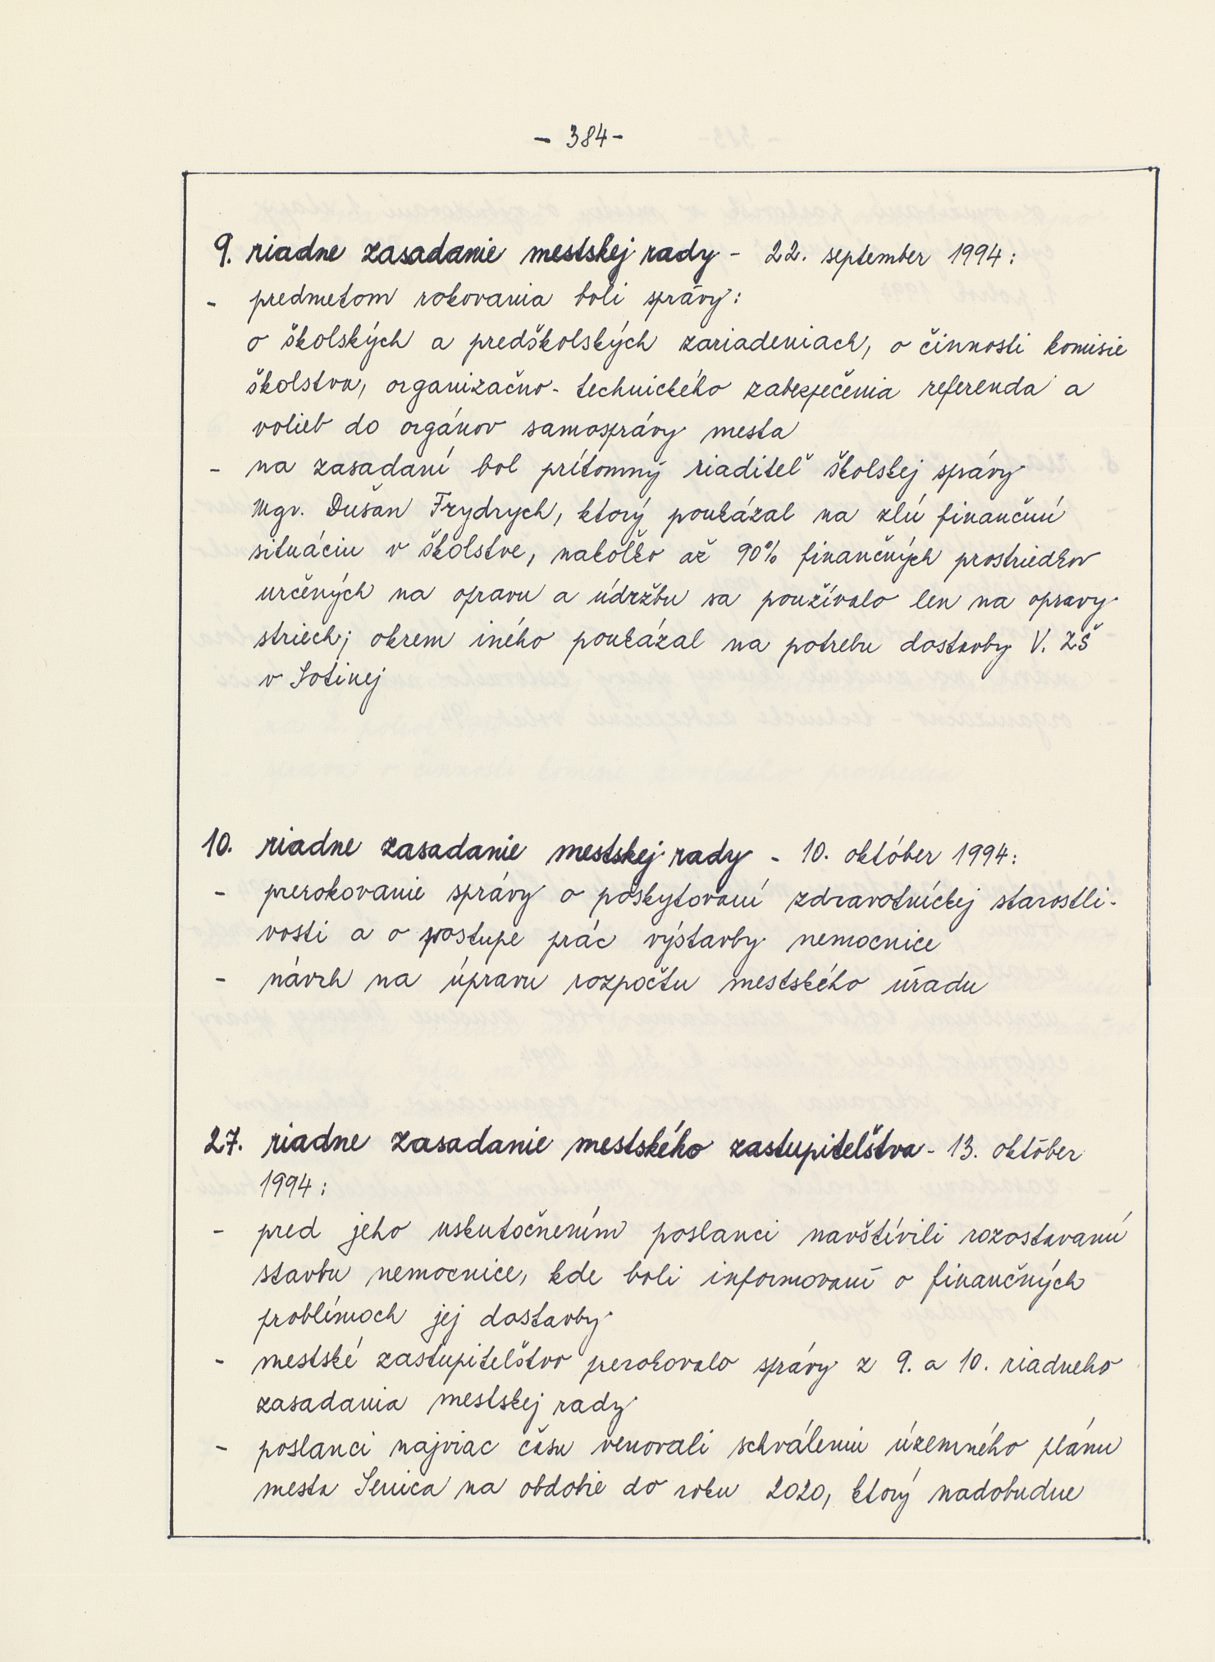 - 384 -
9. riadne zasadanie mestskej rady - 22. september 1994:
- predmetom rokovania boli správy:
o školských a predškolských zariadeniach, o činnosti komisie
školstva, organizačno-technického zabezpečenia referenda a
volieb do orgánov samosprávy mesta
- na zasadaní bol prítomný riaditeľ školskej správy
Mgr. Dušan Frydrych, ktorý poukázal na zlú finančnú
situáciu v školstve, nakoľko až 90% finančných prostriedkov
určených na opravu a údržbu sa používalo len na opravy
striech; okrem iného poukázal na potrebu dostavby V. ZŠ
v Sotinej
10. riadne zasadanie mestskej rady - 10. október 1994:
- prerokovanie správy o poskytovaní zdravotníckej starostli-
vosti a o postupe prác výstavby nemocnice
- návrh na úpravu rozpočtu mestského úradu
27. riadne zasadanie mestského zastupiteľstva - 13. október
1994:
- pred jeho uskutočnením poslanci navštívili rozostavanú
stavbu nemocnice, kde boli informovaní o finančných
problémoch jej dostavby
- mestské zastupiteľstvo prerokovalo správy z 9. a 10. riadneho
zasadania mestskej rady
- poslanci najviac času venovali schváleniu územného plánu
mesta Senica na obdobie do roku 2020, ktorý nadobudne